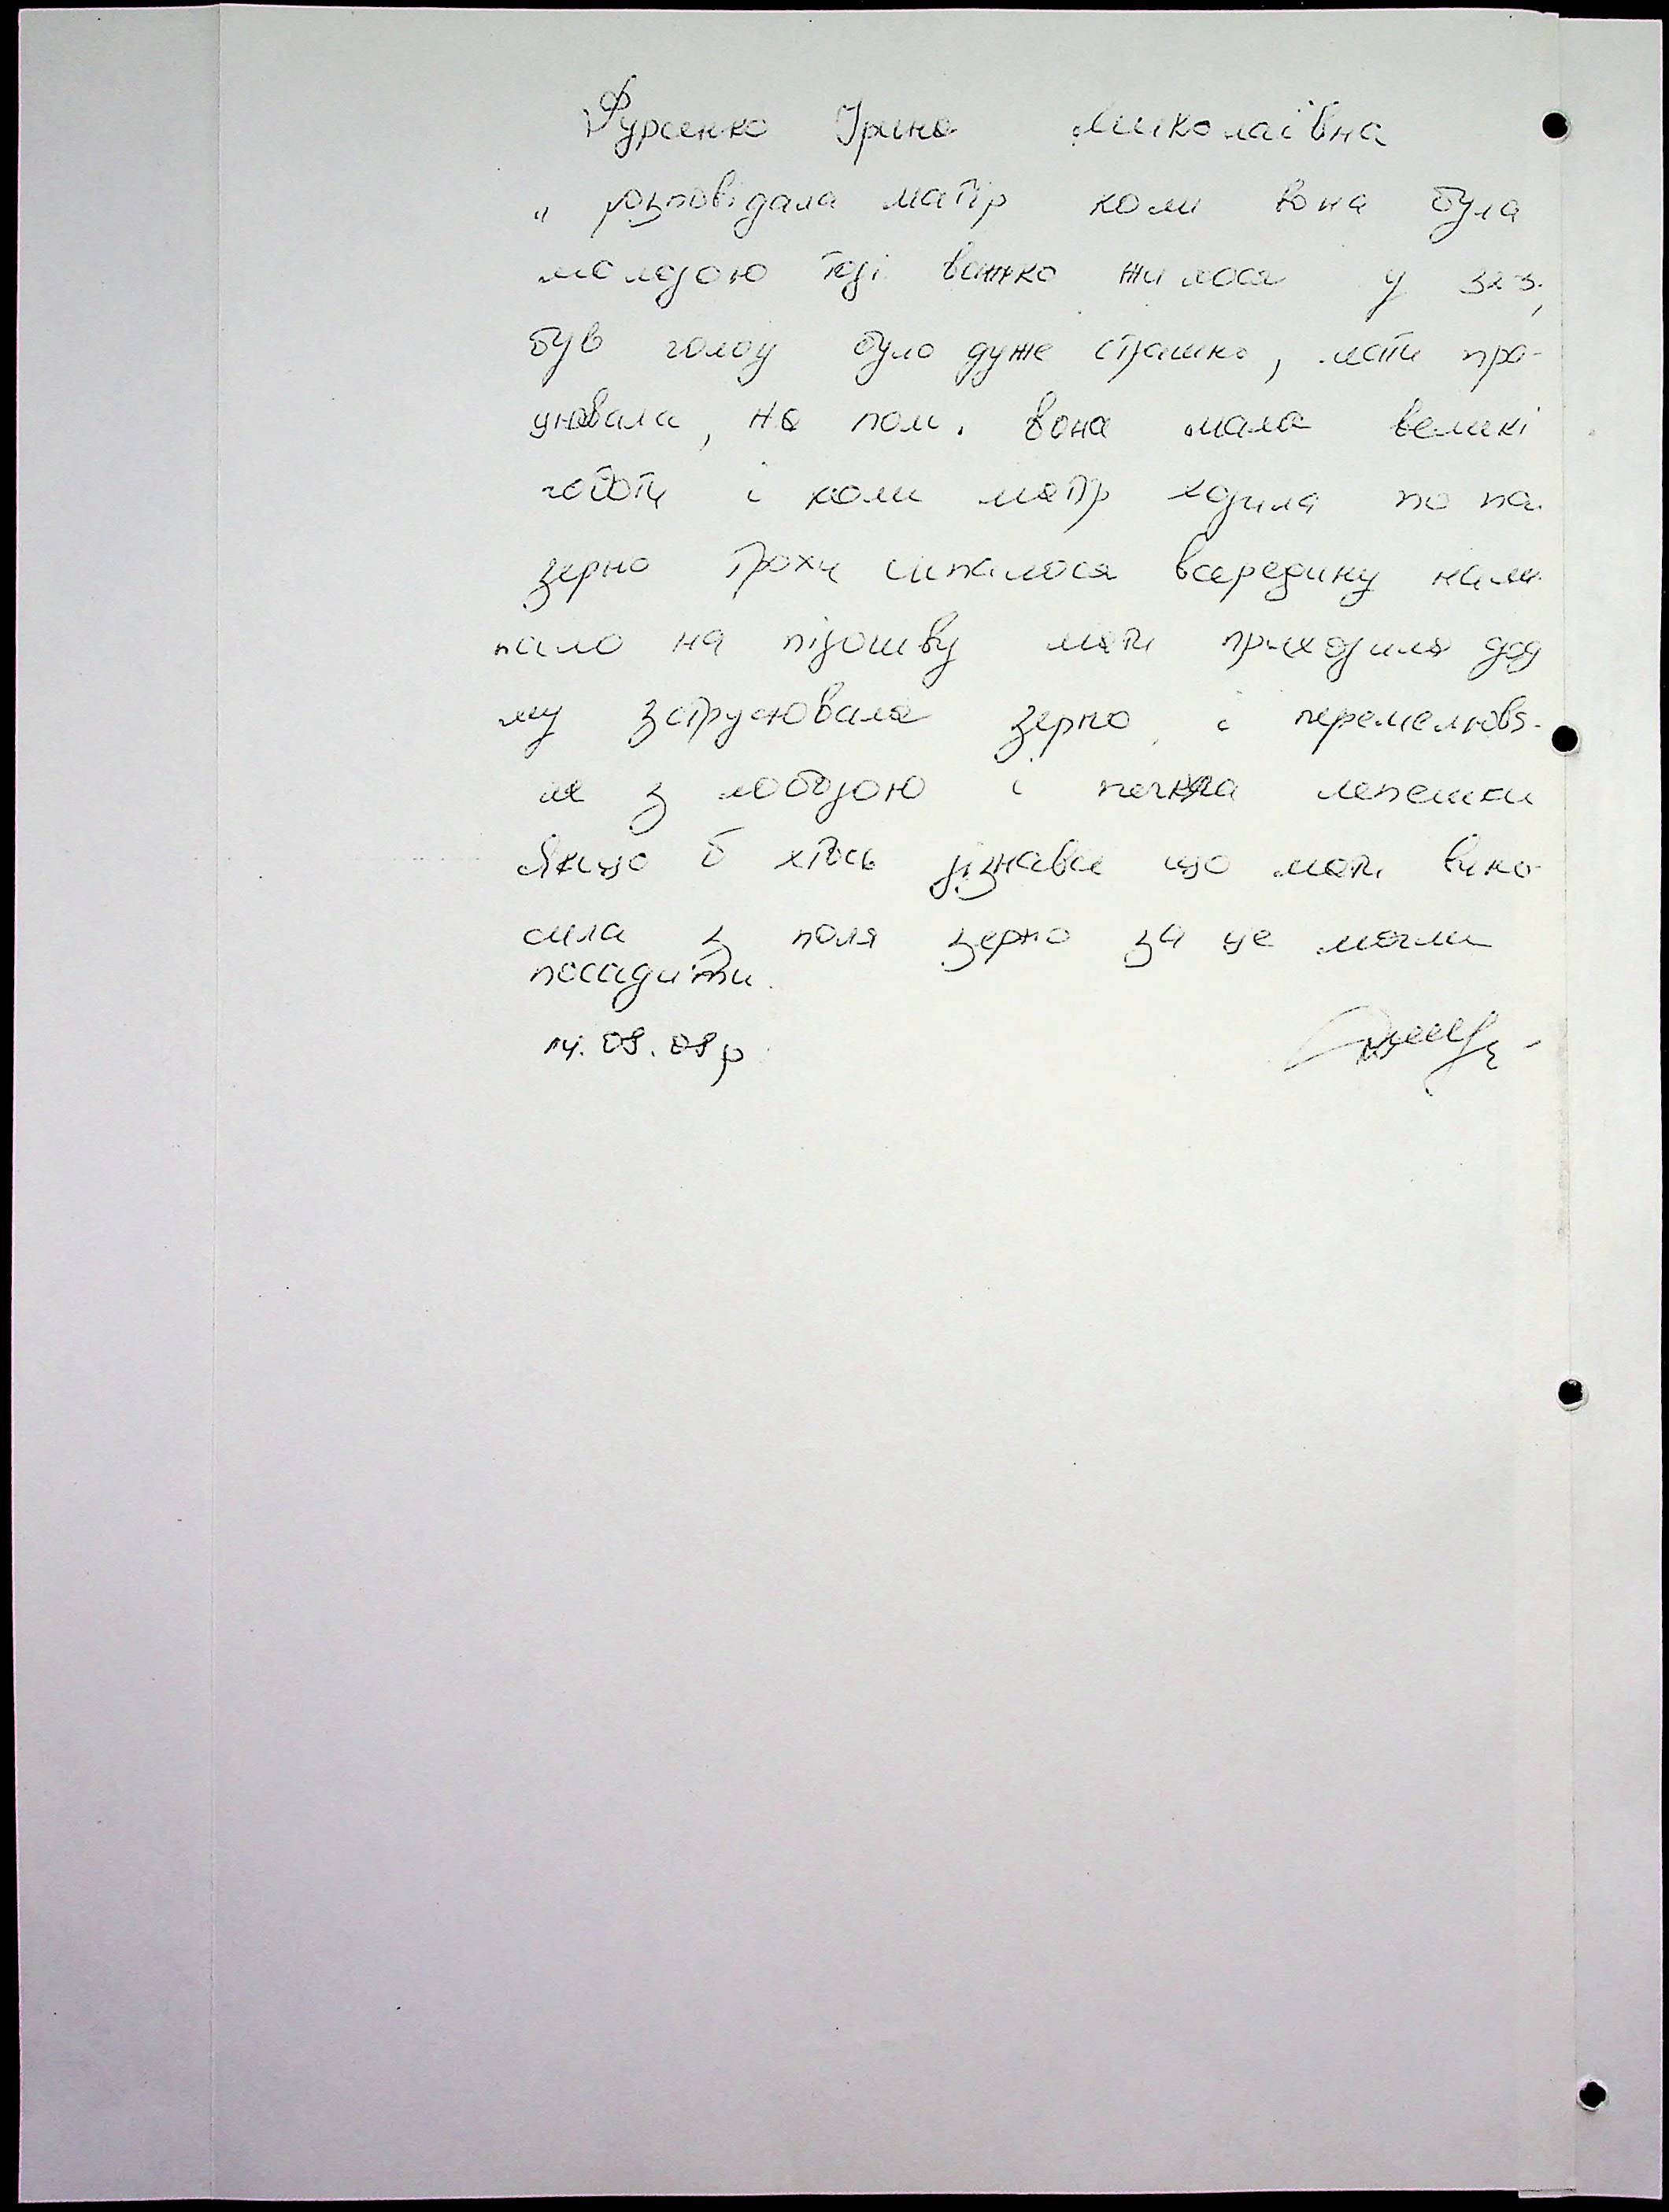 Фурсенко Ірина Миколаївна
„ розповідала матір коли вона була
молодою тоді важко жилося у 32-3.,
був голод було дуже страшно, мати пра-
цювала, на полі. вона мала великі
чоботи і коли матір ходила по по.
зерно трохи сипалося всередину нали
пало на підошву мати приходила дод
му заструювала зерно і перемелюва-
ла з лободою і пекла лепешки
Якщо б хтось дізнався що мати вино-
сила з поля зерно за це могли
посадити.
14.08.08р